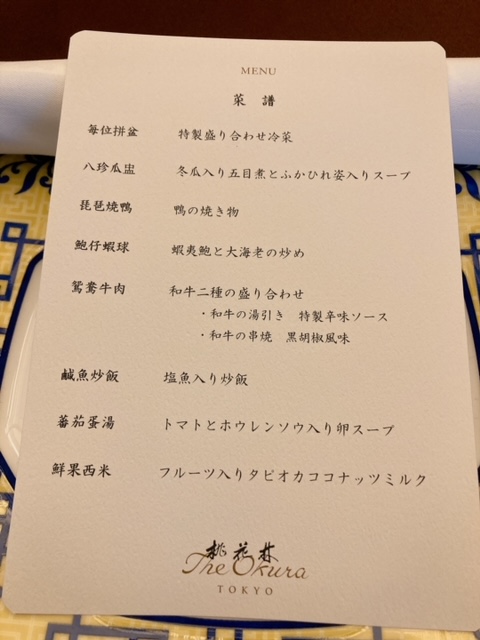 MENU
菜 譜
每位拼盆 特製盛り合わせ冷菜
八珍瓜盅 冬瓜入り五目煮とふかひれ姿入りスープ
琵琶焼鴨 鴨の焼き物
鮑仔蝦球 蝦夷鮑と大海老の炒め
鴛鴦牛肉 和牛二種の盛り合わせ
・和牛の湯引き 特製辛味ソース
・和牛の串焼 黒胡椒風味
鹹魚炒飯 塩魚入り炒飯
蕃茄蛋湯 トマトとホウレンソウ入り卵スープ
鮮果西米 フルーツ入りタピオカココナッツミルク
桃花林
The Okura
TOKYO